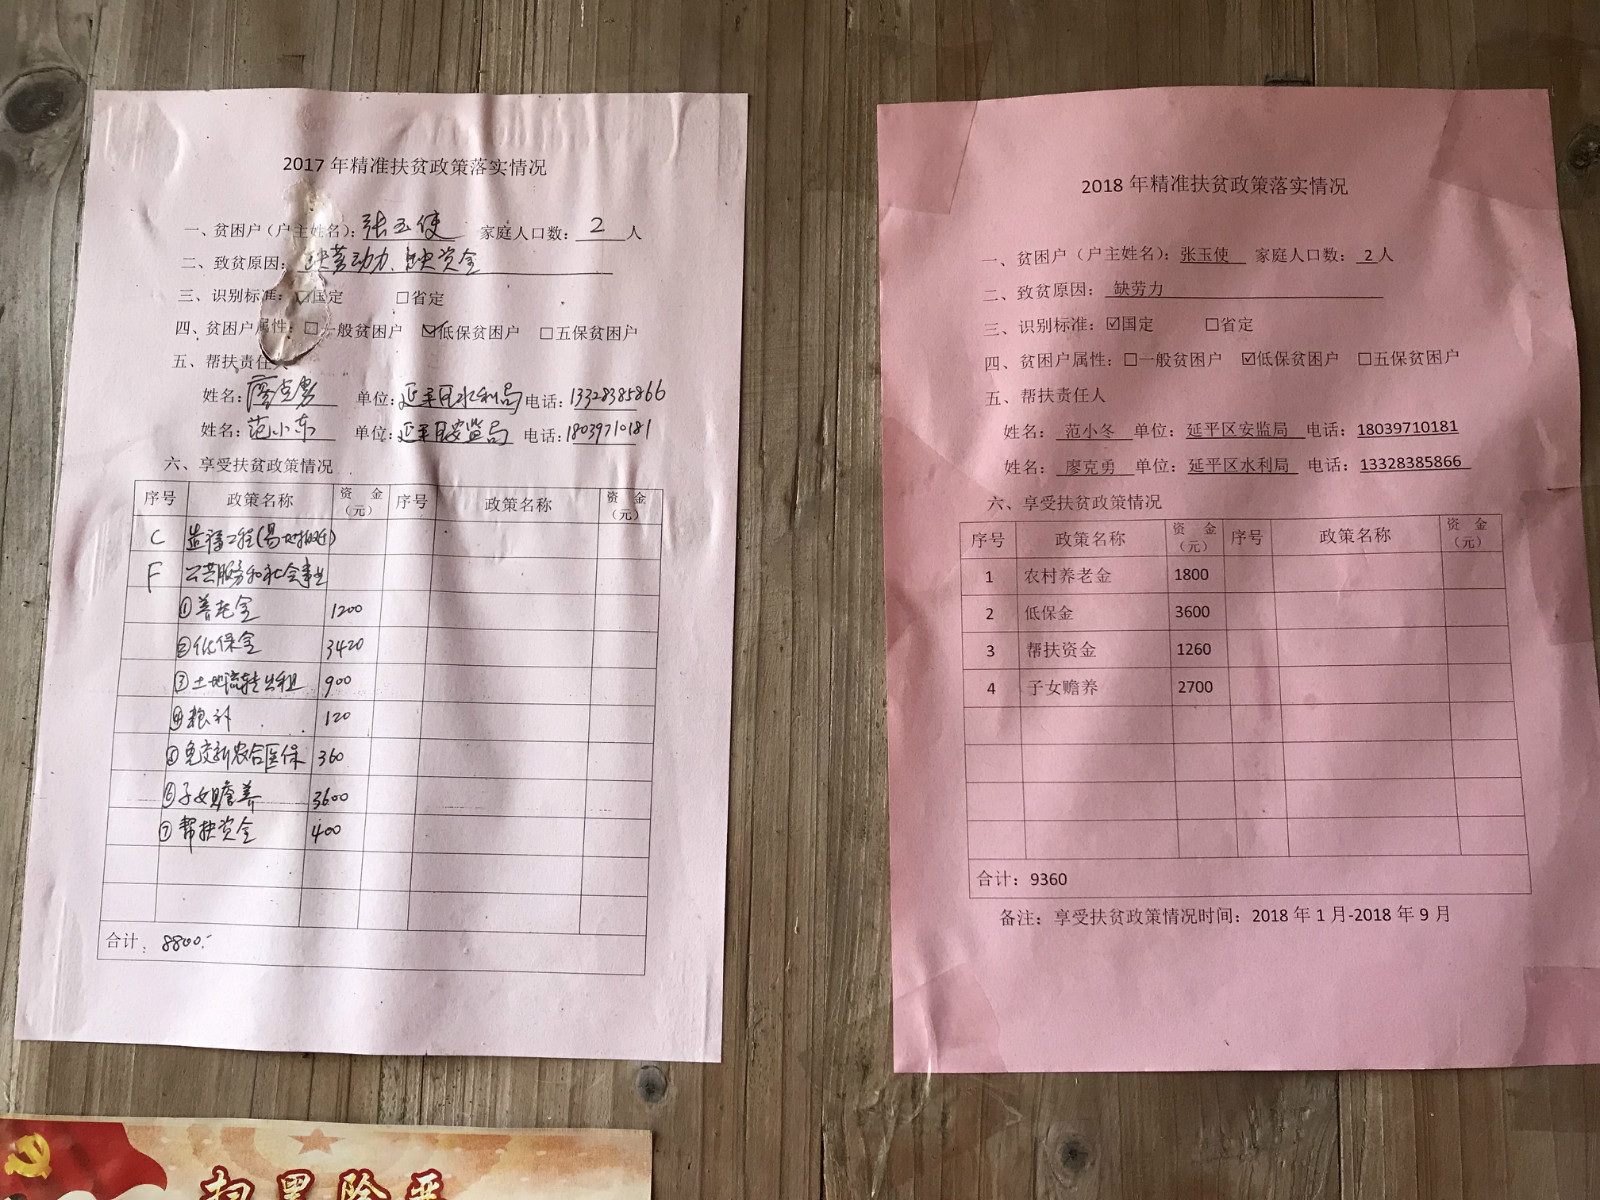 2017 年精准扶贫政策落实情况
一、贫困户（户主姓名）：张玉使 家庭人口数： 2 人
二、致贫原因：缺劳动力、缺资金
三、识别标准：☑国定 ☐省定
四、贫困户属性：☐一般贫困户 ☑低保贫困户 ☐五保贫困户
五、帮扶责任
姓名：廖克勇 单位：延平区水利局 电话：13328385866
姓名：范小东 单位：延平区安监局 电话：18039710181
六、享受扶贫政策情况
序号 政策名称 资 金（元） 序号 政策名称 资 金（元）
C 造福工程(易地搬迁)
F 公共服务和社会事业
①养老金 1200
②低保金 3420
③土地流转出租 900
④粮补 120
⑤免交新农合医保 360
⑥子女赡养 3600
⑦帮扶资金 400
合计：8800.-
2018 年精准扶贫政策落实情况
一、贫困户（户主姓名）：张玉使 家庭人口数： 2 人
二、致贫原因： 缺劳力
三、识别标准：☑国定 ☐省定
四、贫困户属性：☐一般贫困户 ☑低保贫困户 ☐五保贫困户
五、帮扶责任人
姓名： 范小冬 单位：延平区安监局 电话：18039710181
姓名： 廖克勇 单位：延平区水利局 电话：13328385866
六、享受扶贫政策情况
序号 政策名称 资 金（元） 序号 政策名称 资 金（元）
1 农村养老金 1800
2 低保金 3600
3 帮扶资金 1260
4 子女赡养 2700
合计：9360
备注：享受扶贫政策情况时间：2018 年 1 月-2018 年 9 月
扫黑除恶